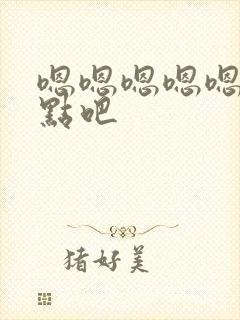 嗯嗯嗯嗯嗯
點吧
猪好美